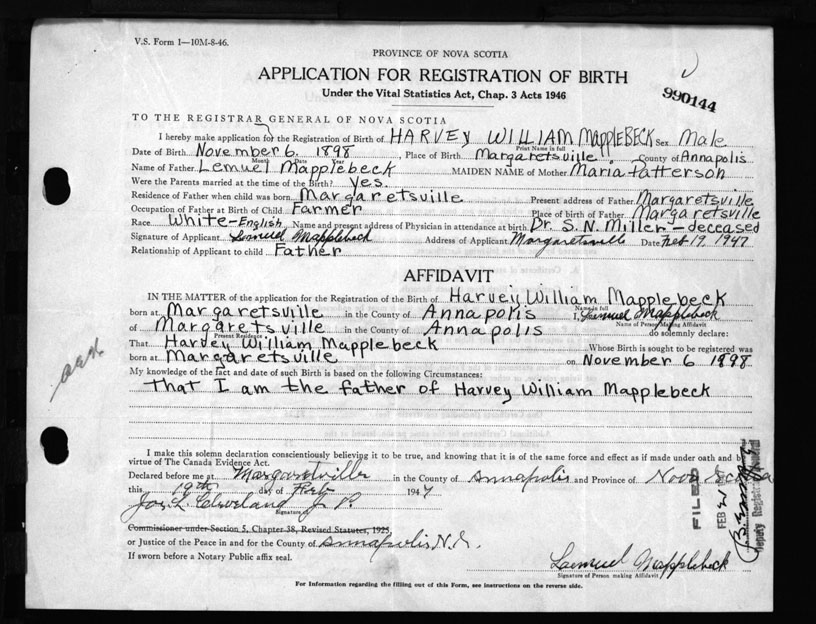 V.S. Form 1—10M-8-46.
PROVINCE OF NOVA SCOTIA
APPLICATION FOR REGISTRATION OF BIRTH
Under the Vital Statistics Act, Chap. 3 Acts 1946
990144
TO THE REGISTRAR GENERAL OF NOVA SCOTIA
I hereby make application for the Registration of Birth of HARVEY WILLIAM MAPPLEBECK Sex Male
Print Name in full
Date of Birth November 6. 1898, Place of Birth Margaretsville, County of Annapolis
Month Date Year
Name of Father Lemuel Mapplebeck MAIDEN NAME of Mother Maria Patterson
Were the Parents married at the time of the Birth? Yes.
Residence of Father when child was born Margaretsville Present address of Father Margaretsville
Occupation of Father at Birth of Child Farmer Place of birth of Father Margaretsville
Race White-English Name and present address of Physician in attendance at birth Dr. S. N. Miller - deceased
Signature of Applicant Lemuel Mapplebeck Address of Applicant Margaretsville Date Feb 19. 1947
Relationship of Applicant to child Father
AFFIDAVIT
IN THE MATTER of the application for the Registration of the Birth of Harvey William Mapplebeck
Name in full
born at Margaretsville in the County of Annapolis I, Lemuel Mapplebeck
Name of Person Making Affidavit
of Margaretsville in the County of Annapolis do solemnly declare:
Present Residence
That Harvey William Mapplebeck Whose Birth is sought to be registered was
born at Margaretsville on November 6 1898
My knowledge of the fact and date of such Birth is based on the following Circumstances:
that I am the father of Harvey William Mapplebeck
I make this solemn declaration conscientiously believing it to be true, and knowing that it is of the same force and effect as if made under oath and by
virtue of The Canada Evidence Act.
Declared before me at Margaretville in the County of Annapolis and Province of Nova Scotia
this 19th day of Feb 1947
Jos. L. Cleveland J. P.
Signature of
Commissioner under Section 5, Chapter 38, Revised Statutes, 1923,
or Justice of the Peace in and for the County of Annapolis, N.S.
If sworn before a Notary Public affix seal.
Lemuel Mapplebeck
Signature of Person making Affidavit
FILED
FEB 21
Deputy Registrar General
For Information regarding the filling out of this Form, see instructions on the reverse side.